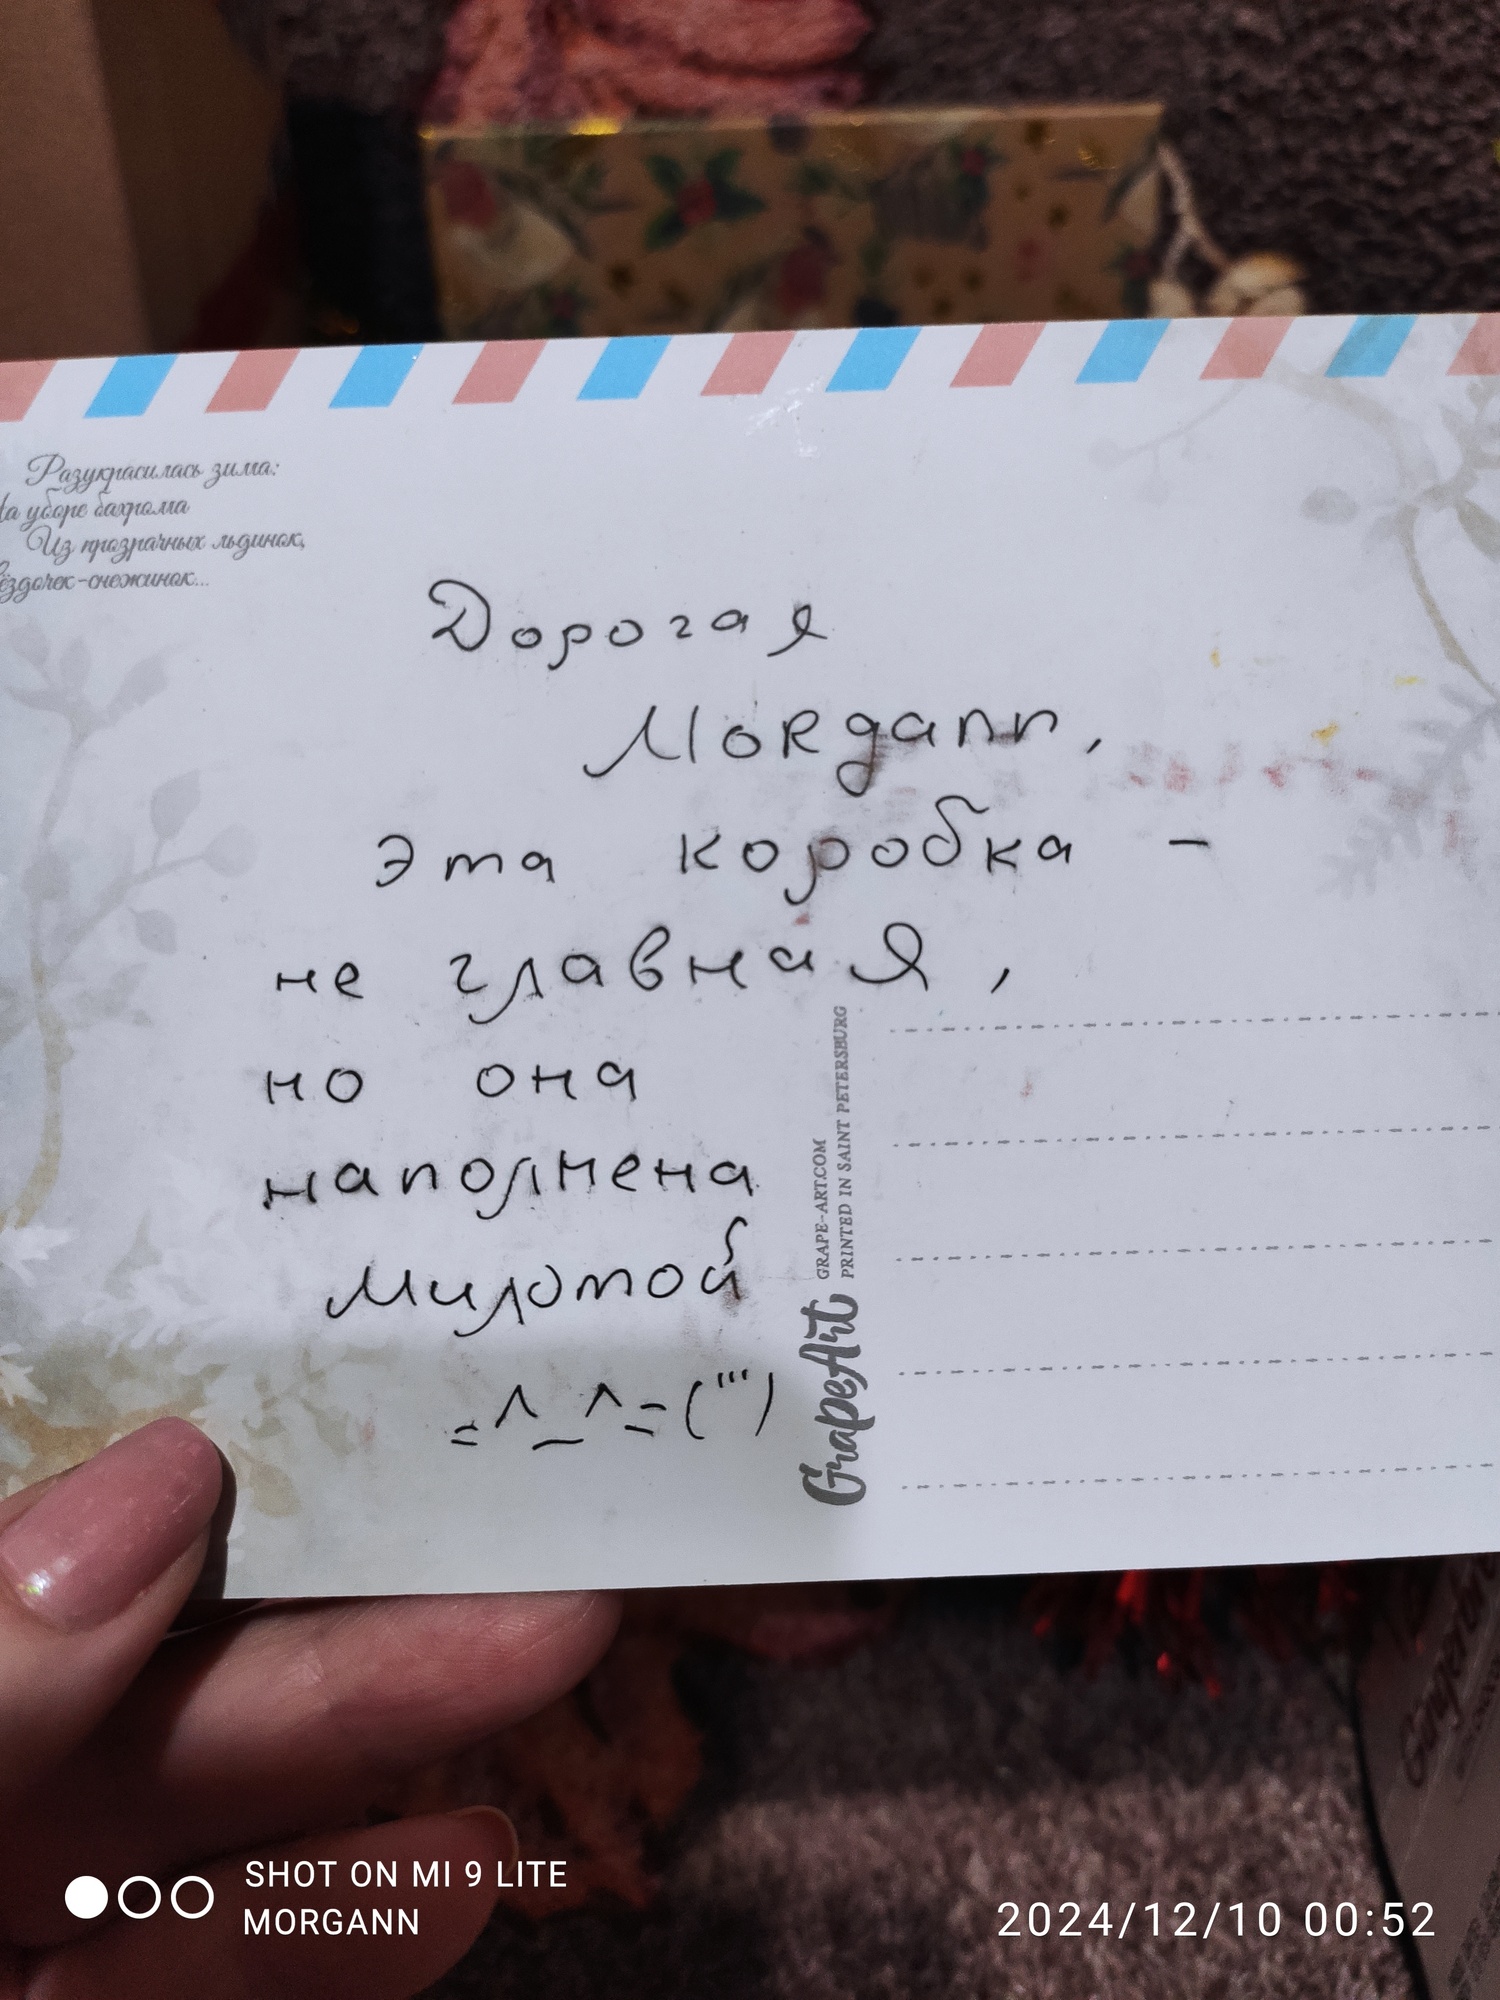 Разукрасилась зима:
На уборе бахрома
Из прозрачных льдинок,
Звёздочек-снежинок...
Дорогая
Morgann,
эта коробка -
не главная,
но она
наполнена
милотой
=^_^=(''')
GRAPE-ART.COM
PRINTED IN SAINT PETERSBURG
GrapeArt
SHOT ON MI 9 LITE
MORGANN
2024/12/10 00:52